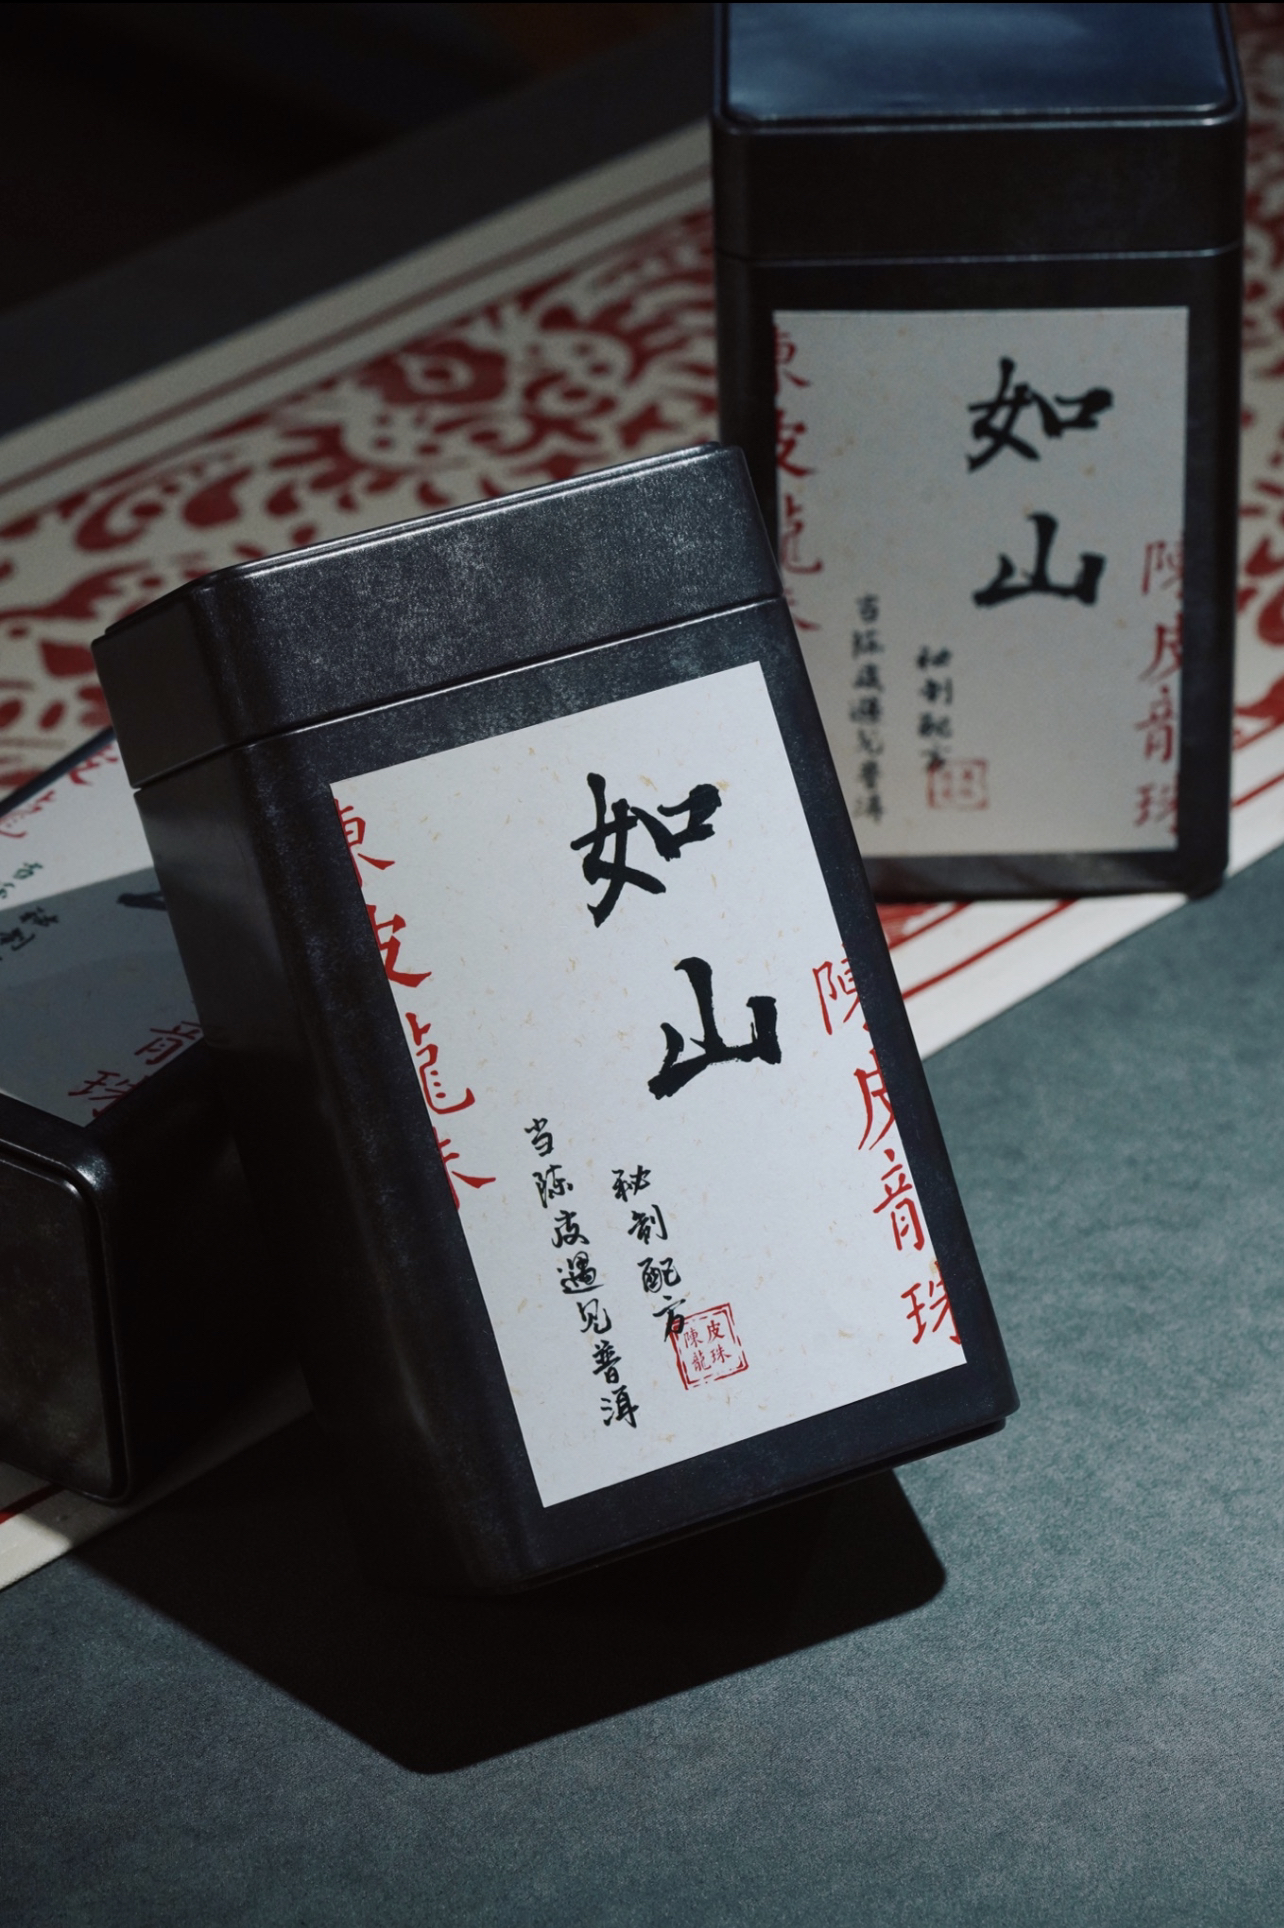 如山
陳皮龍珠
秘制配方
当陈皮遇见普洱
陳皮龍珠
皮珠
陳龍
如山
陳皮龍珠
秘制配方
当陈皮遇见普洱
陳皮龍珠
龍珠